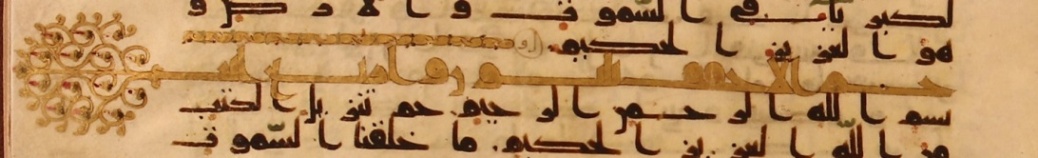 لكبريا في السموت و الارض و
هو العزيز الحكيم
الاحقف
بسم الله الرحمن الرحيم حم تنزيل الكتب
من الله العزيز الحكيم ما خلقنا السموت